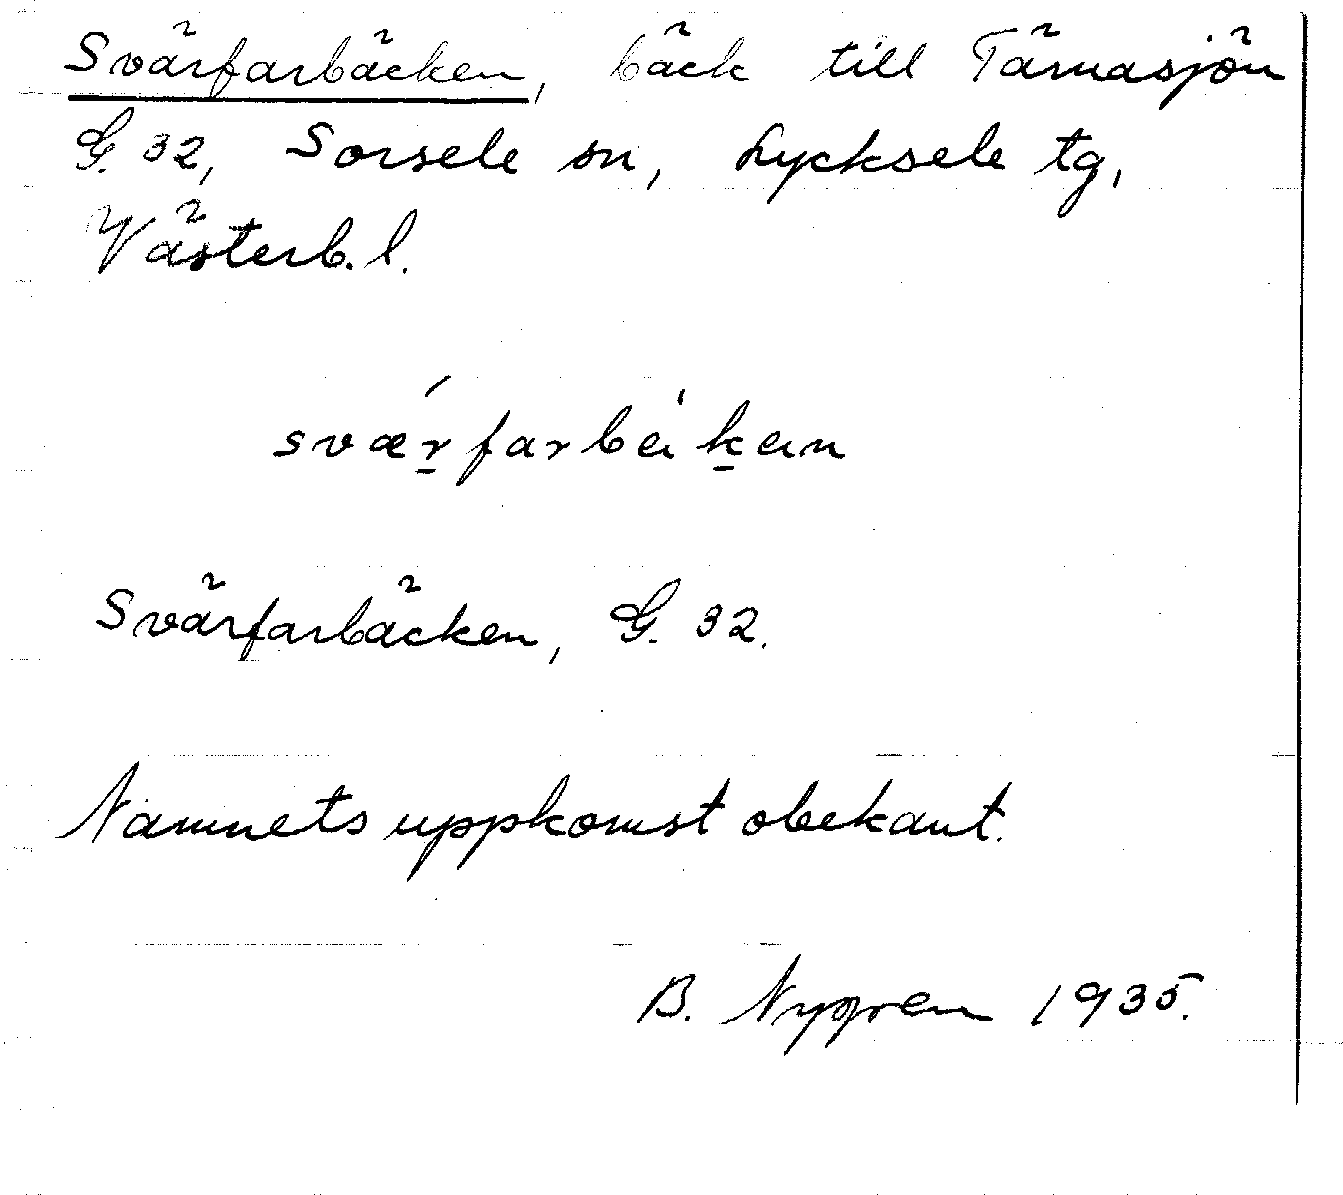 Svärfarbäcken, bäck till Tärnasjön
G. 32, Sorsele sn, Lycksele tg,
Västerb. l.
sværfarbäkän
Svärfarbäcken, G. 32.
Namnets uppkomst obekant.
B. Nygren 1935.